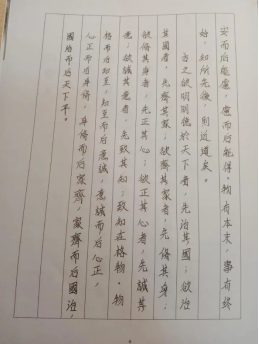 安而后能慮，慮而后能得。物有本末，事有終
始，知所先後，則近道矣。
古之欲明明德於天下者，先治其國；欲治
其國者，先齊其家；欲齊其家者，先脩其身；
欲脩其身者，先正其心；欲正其心者，先誠其
意；欲誠其意者，先致其知；致知在格物。物
格而后知至，知至而后意誠，意誠而后心正，
心正而后身脩，身脩而后家齊，家齊而后國治，
國治而后天下平。